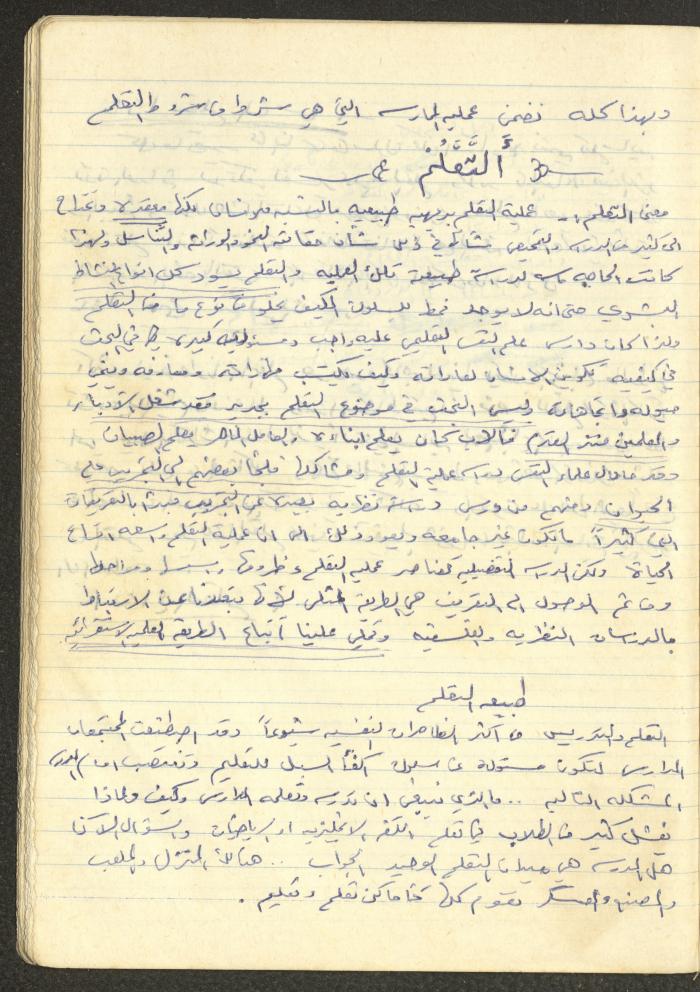 وبهذا كله نضمن عملية الممارسه التي هي شرط من شروط التعلم
التَّعَلُّمْ
معنى التعلم :- عملية التعلم بديهيه طبيعيه بالنسبه للانسان لكنها معقده وتحتاج
الى كثير من الدراسه والتمحيص شأنها في ذلك شأن حقائق النمو والوراثه والتناسل ولهذا
كانت الحاجه ماسه لدراسة طبيعة تلك العمليه والتعلم يسود كل انواع النشاط
البشري حتى انه لا يوجد نمط للسلوك المكيف يخلو من نوع ما من التعلم
ولذا كان دارس علم النفس التعليمي عليه واجب ومسئوليه كبيره في البحث
في كيفيه تكوين الانسان لعاداته وكيف يكتسب مهاراته ومعارفه وينمي
ميوله واتجاهاته وليس البحث في موضوع التعلم بجديد فقد شغل الآباء
والمعلمين منذ القدم فالأب كان يعلم ابناءه والعامل الماهر يعلم الصبيان
وقد حاول علماء النفس دراسه عملية التعلم ومشاكلها فلجأ بعضهم الى التجريب على
الحيوان ومنهم من درس دراسة نظريه بعيده عن التجريب فبدأ بالتعريفات
التي كثيراً ما تكون غير جامعه ويعود ذلك الى ان عملية التعلم واسعه اتساع
الحياة ولكن الدراسه التفصيليه لعناصر عمليه التعلم وظروفها ومراحلها
ومن ثم الوصول الى التعريف هي الطريقة المثلى لانها تبعدنا عن الارتباط
بالدراسات النظريه والفلسفيه وتملي علينا اتباع الطريقه العلميه الاستقرائيه
طبيعه التعلم
التعلم والتدريس من اكثر الظاهرات النفسيه شيوعاً وقد اصطنعت المجتمعات
المدارس لتكون مسئولة عن سلوك اكفأ السبل للتعليم وتنتصب امام المدرس
المشكله التاليه .. ما الذي ينبغي ان تدرسه وتعلمه المدارس وكيف ولماذا
يفشل كثير من الطلاب في تعلم اللغه الانجليزيه او الرياضيات والسؤال الآن
هل المدرسه هي ميدان التعلم الوحيد الجواب .. هنالك المنزل والملعب
والمصنع والمعسكر تقوم كلها كأماكن تعلم وتعليم .